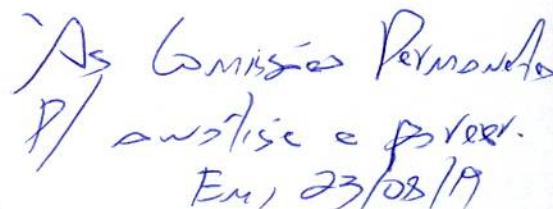 Às Comissões Permanentes
P/ análise e parecer.
Em, 23/08/19